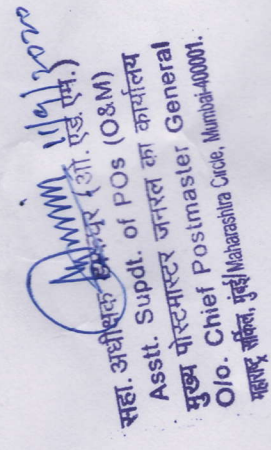 11/9/2020
सहा. अधीक्षक डाकघर (ओ. एंड एम.)
Asstt. Supdt. of POs (O&M)
मुख्य पोस्टमास्टर जनरल का कार्यालय
O/o. Chief Postmaster General
महाराष्ट्र सर्किल, मुंबई/Maharashtra Circle, Mumbai-400001.